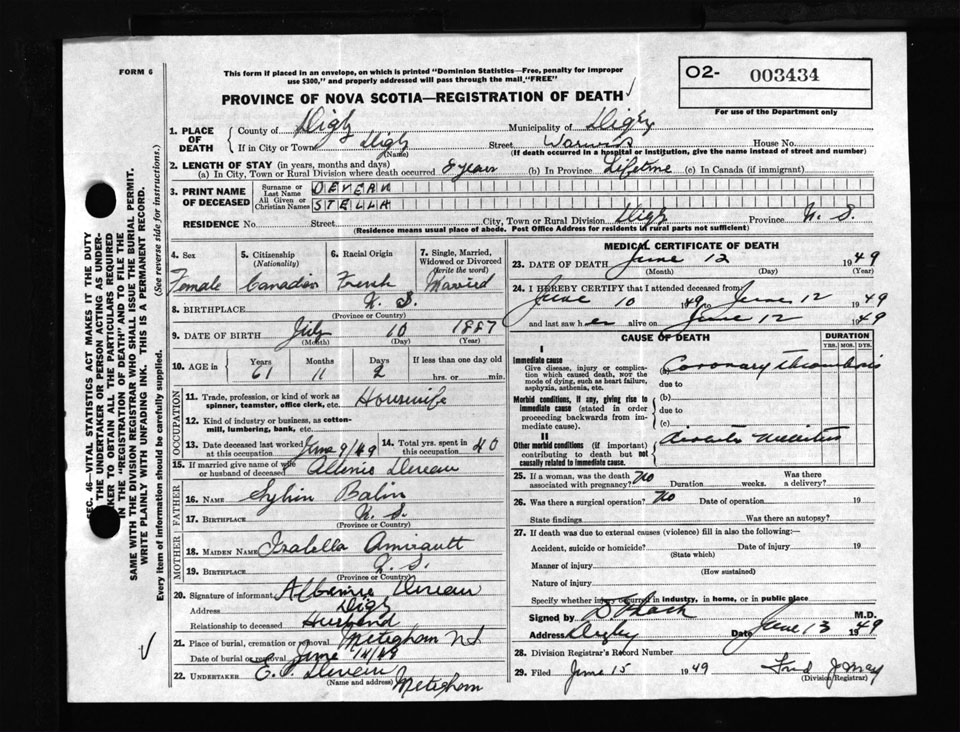 FORM 6
This form if placed in an envelope, on which is printed "Dominion Statistics—Free, penalty for improper
use $300," and properly addressed will pass through the mail "FREE"
PROVINCE OF NOVA SCOTIA—REGISTRATION OF DEATH
O2- 003434
For use of the Department only
SEC. 46—VITAL STATISTICS ACT MAKES IT THE DUTY
OF THE UNDERTAKER OR PERSON ACTING AS UNDER-
TAKER TO OBTAIN ALL THE PARTICULARS REQUIRED
IN THE "REGISTRATION OF DEATH" AND TO FILE THE
SAME WITH THE DIVISION REGISTRAR WHO SHALL ISSUE THE BURIAL PERMIT.
WRITE PLAINLY WITH UNFADING INK. THIS IS A PERMANENT RECORD.
Every item of information should be carefully supplied. (See reverse side for instructions.)
1. PLACE OF DEATH County of Digby Municipality of Digby
If in City or Town Digby (Name) Street Warwick House No.
(If death occurred in a hospital or institution, give the name instead of street and number)
2. LENGTH OF STAY (in years, months and days)
(a) In City, Town or Rural Division where death occurred 8 years (b) In Province Lifetime (c) In Canada (if immigrant)
3. PRINT NAME OF DECEASED Surname or Last Name DEVEAU
All Given or Christian Names STELLA
RESIDENCE No. Street City, Town or Rural Division Digby Province N. S.
(Residence means usual place of abode. Post Office Address for residents in rural parts not sufficient)
4. Sex Female
5. Citizenship (Nationality) Canadian
6. Racial Origin French
7. Single, Married, Widowed or Divorced (Write the word) Married
8. BIRTHPLACE N. S.
(Province or Country)
9. DATE OF BIRTH July 10 1887
(Month) (Day) (Year)
10. AGE in Years 61 Months 11 Days 2 If less than one day old hrs. or min.
OCCUPATION
11. Trade, profession, or kind of work as spinner, teamster, office clerk, etc. Housewife
12. Kind of industry or business, as cotton-mill, lumbering, bank, etc.
13. Date deceased last worked at this occupation June 9/49 14. Total yrs. spent in this occupation 40
15. If married give name of wife or husband of deceased Deveau
FATHER
16. NAME
17. BIRTHPLACE N. S.
(Province or Country)
MOTHER
18. MAIDEN NAME Isabella Amirault
19. BIRTHPLACE N. S.
(Province or Country)
20. Signature of informant Deveau
Address Digby
Relationship to deceased Husband
21. Place of burial, cremation or removal Meteghan NS
Date of burial or removal June 14/49
22. UNDERTAKER E. Deveau
(Name and address) Meteghan
MEDICAL CERTIFICATE OF DEATH
23. DATE OF DEATH June 12 1949
(Month) (Day) (Year)
24. I HEREBY CERTIFY that I attended deceased from
June 10 1949 to June 12 1949
and last saw her alive on June 12 1949
CAUSE OF DEATH DURATION
YRS. MOS. DYS.
I
Immediate cause (a) Coronary thrombosis
Give disease, injury or complication which caused death, not the mode of dying, such as heart failure, asphyxia, asthenia, etc. due to
Morbid conditions, if any, giving rise to immediate cause (stated in order proceeding backwards from immediate cause). (b)
due to
(c)
II
Other morbid conditions (if important) contributing to death but not causally related to immediate cause. Mellitus
25. If a woman, was the death associated with pregnancy? No Duration weeks. Was there a delivery?
26. Was there a surgical operation? No Date of operation 19
State findings Was there an autopsy?
27. If death was due to external causes (violence) fill in also the following:—
Accident, suicide or homicide? Date of injury 19
(State which)
Manner of injury
(How sustained)
Nature of injury
Specify whether injury occurred in industry, in home, or in public place
Signed by M.D.
Address Digby Date June 13 1949
28. Division Registrar's Record Number
29. Filed June 15 1949
(Division Registrar)